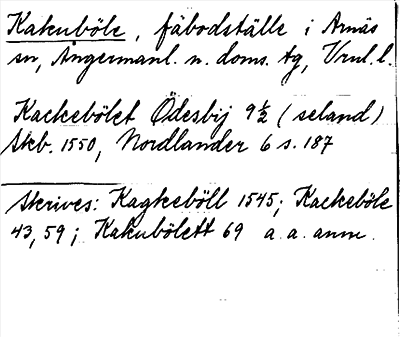 Kakuböle, fäbodställe i Arnäs
sn, Ångermanl. n. doms. tg, Vrnl. l.
Kackebölet Ödesbij 9 ½ (seland)
Skb. 1550, Nordlander 6 s. 187
Skrives: Kagkeböll 1545; Kackeböle
43, 59; Kakubölett 69 a. a. anm.